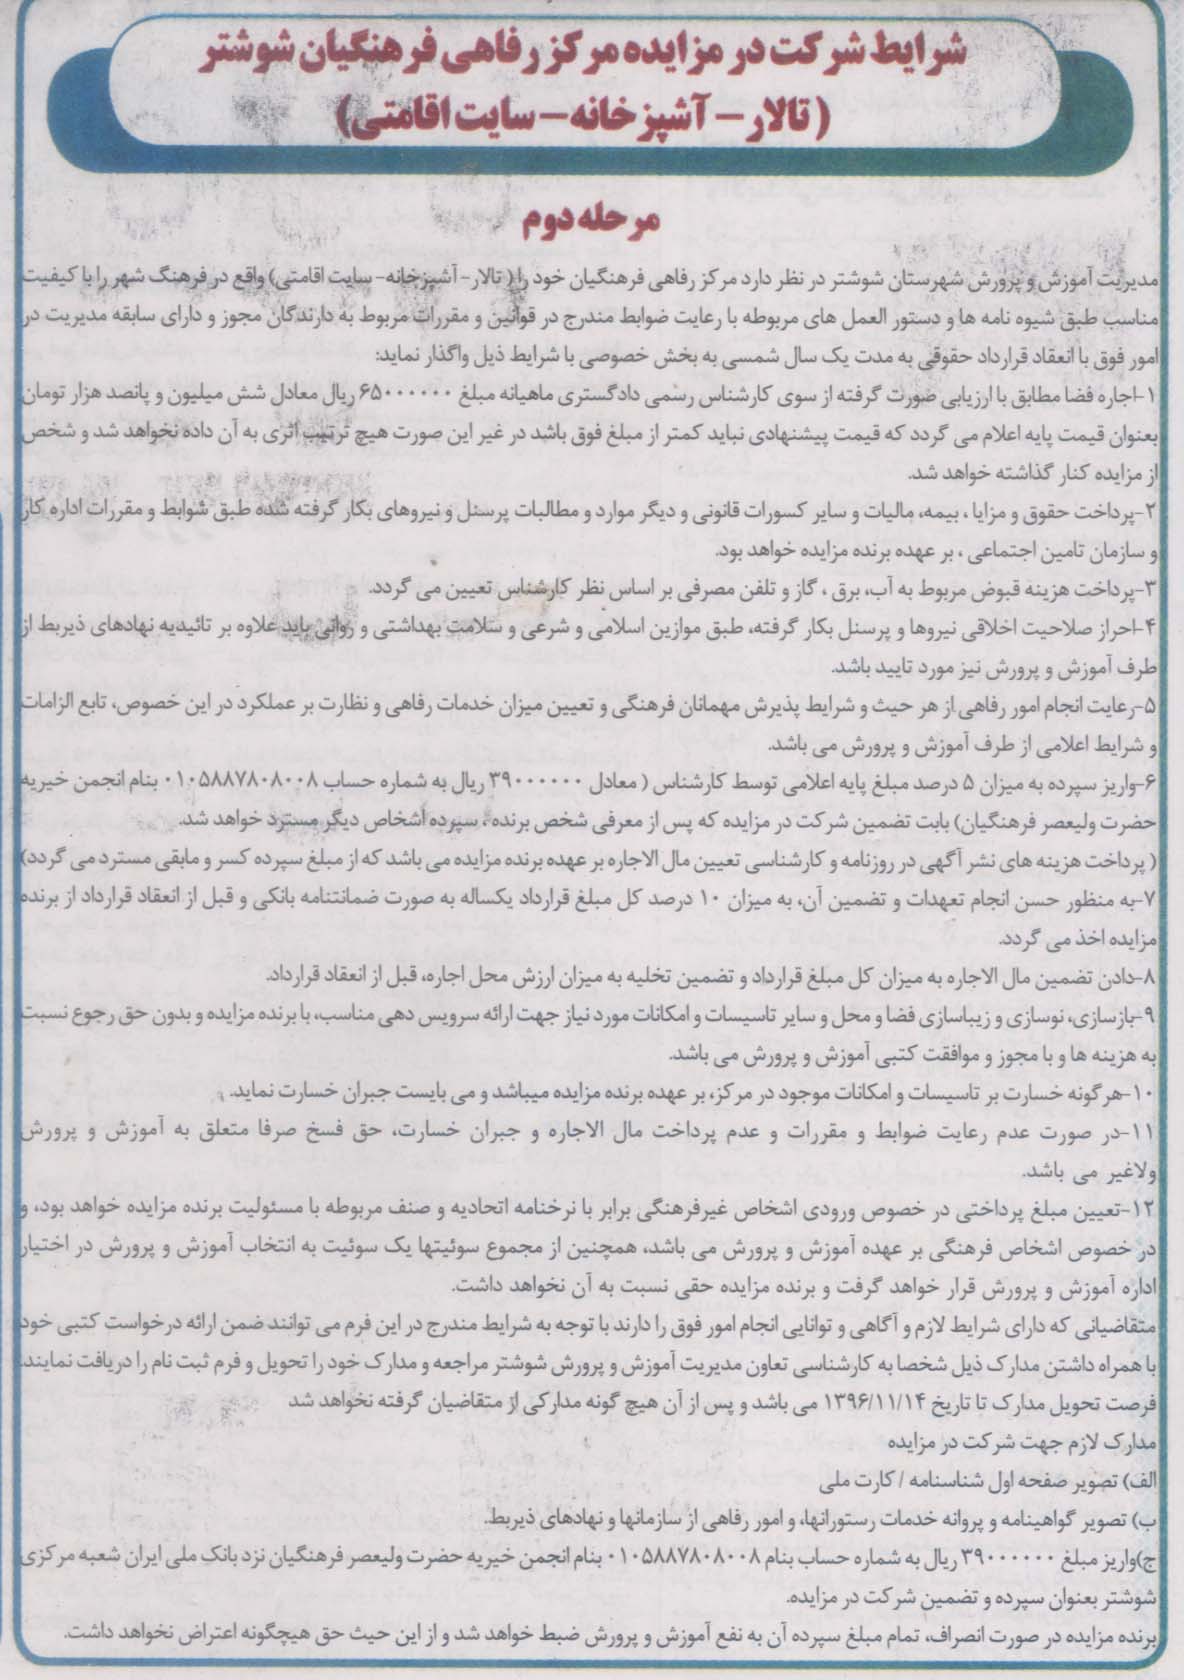 شرایط شرکت در مزایده مرکز رفاهی فرهنگیان شوشتر
(تالار – آشپزخانه – سایت اقامتی)
مرحله دوم
مدیریت آموزش و پرورش شهرستان شوشتر در نظر دارد مرکز رفاهی فرهنگیان خود را ( تالار- آشپزخانه- سایت اقامتی) واقع در فرهنگ شهر را با کیفیت
مناسب طبق شیوه نامه ها و دستور العمل های مربوطه با رعایت ضوابط مندرج در قوانین و مقررات مربوط به دارندگان مجوز و دارای سابقه مدیریت در
امور فوق با انعقاد قرارداد حقوقی به مدت یک سال شمسی به بخش خصوصی با شرایط ذیل واگذار نماید:
۱-اجاره فضا مطابق با ارزیابی صورت گرفته از سوی کارشناس رسمی دادگستری ماهیانه مبلغ ۶۵۰۰۰۰۰۰ ریال معادل شش میلیون و پانصد هزار تومان
بعنوان قیمت پایه اعلام می گردد که قیمت پیشنهادی نباید کمتر از مبلغ فوق باشد در غیر این صورت هیچ ترتیب اثری به آن داده نخواهد شد و شخص
از مزایده کنار گذاشته خواهد شد.
۲-پرداخت حقوق و مزایا ، بیمه، مالیات و سایر کسورات قانونی و دیگر موارد و مطالبات پرسنل و نیروهای بکار گرفته شده طبق شوابط و مقررات اداره کار
و سازمان تامین اجتماعی ، بر عهده برنده مزایده خواهد بود.
۳-پرداخت هزینه قبوض مربوط به آب، برق ، گاز و تلفن مصرفی بر اساس نظر کارشناس تعیین می گردد.
۴-احراز صلاحیت اخلاقی نیروها و پرسنل بکار گرفته، طبق موازین اسلامی و شرعی و سلامت بهداشتی و روانی باید علاوه بر تائیدیه نهادهای ذیربط از
طرف آموزش و پرورش نیز مورد تایید باشد.
۵-رعایت انجام امور رفاهی از هر حیث و شرایط پذیرش مهمانان فرهنگی و تعیین میزان خدمات رفاهی و نظارت بر عملکرد در این خصوص، تابع الزامات
و شرایط اعلامی از طرف آموزش و پرورش می باشد.
۶-واریز سپرده به میزان ۵ درصد مبلغ پایه اعلامی توسط کارشناس ( معادل ۳۹۰۰۰۰۰۰ ریال به شماره حساب ۰۱۰۵۸۸۷۸۰۸۰۰۸ بنام انجمن خیریه
حضرت ولیعصر فرهنگیان) بابت تضمین شرکت در مزایده که پس از معرفی شخص برنده ، سپرده اشخاص دیگر مسترد خواهد شد.
( پرداخت هزینه های نشر آگهی در روزنامه و کارشناسی تعیین مال الاجاره بر عهده برنده مزایده می باشد که از مبلغ سپرده کسر و مابقی مسترد می گردد)
۷-به منظور حسن انجام تعهدات و تضمین آن، به میزان ۱۰ درصد کل مبلغ قرارداد یکساله به صورت ضمانتنامه بانکی و قبل از انعقاد قرارداد از برنده
مزایده اخذ می گردد.
۸-دادن تضمین مال الاجاره به میزان کل مبلغ قرارداد و تضمین تخلیه به میزان ارزش محل اجاره، قبل از انعقاد قرارداد.
۹-بازسازی، نوسازی و زیباسازی فضا و محل و سایر تاسیسات و امکانات مورد نیاز جهت ارائه سرویس دهی مناسب، با برنده مزایده و بدون حق رجوع نسبت
به هزینه ها و با مجوز و موافقت کتبی آموزش و پرورش می باشد.
۱۰-هرگونه خسارت بر تاسیسات و امکانات موجود در مرکز، بر عهده برنده مزایده میباشد و می بایست جبران خسارت نماید.
۱۱-در صورت عدم رعایت ضوابط و مقررات و عدم پرداخت مال الاجاره و جبران خسارت، حق فسخ صرفا متعلق به آموزش و پرورش
ولاغیر می باشد.
۱۲-تعیین مبلغ پرداختی در خصوص ورودی اشخاص غیرفرهنگی برابر با نرخنامه اتحادیه و صنف مربوطه با مسئولیت برنده مزایده خواهد بود، و
در خصوص اشخاص فرهنگی بر عهده آموزش و پرورش می باشد، همچنین از مجموع سوئیتها یک سوئیت به انتخاب آموزش و پرورش در اختیار
اداره آموزش و پرورش قرار خواهد گرفت و برنده مزایده حقی نسبت به آن نخواهد داشت.
متقاضیانی که دارای شرایط لازم و آگاهی و توانایی انجام امور فوق را دارند با توجه به شرایط مندرج در این فرم می توانند ضمن ارائه درخواست کتبی خود
با همراه داشتن مدارک ذیل شخصا به کارشناسی تعاون مدیریت آموزش و پرورش شوشتر مراجعه و مدارک خود را تحویل و فرم ثبت نام را دریافت نمایند.
فرصت تحویل مدارک تا تاریخ ۱۳۹۶/۱۱/۱۴ می باشد و پس از آن هیچ گونه مدارکی از متقاضیان گرفته نخواهد شد
مدارک لازم جهت شرکت در مزایده
الف) تصویر صفحه اول شناسنامه / کارت ملی
ب) تصویر گواهینامه و پروانه خدمات رستورانها، و امور رفاهی از سازمانها و نهادهای ذیربط.
ج)واریز مبلغ ۳۹۰۰۰۰۰۰ ریال به شماره حساب بنام ۰۱۰۵۸۸۷۸۰۸۰۰۸ بنام انجمن خیریه حضرت ولیعصر فرهنگیان نزد بانک ملی ایران شعبه مرکزی
شوشتر بعنوان سپرده و تضمین شرکت در مزایده.
برنده مزایده در صورت انصراف، تمام مبلغ سپرده آن به نفع آموزش و پرورش ضبط خواهد شد و از این حیث حق هیچگونه اعتراض نخواهد داشت.